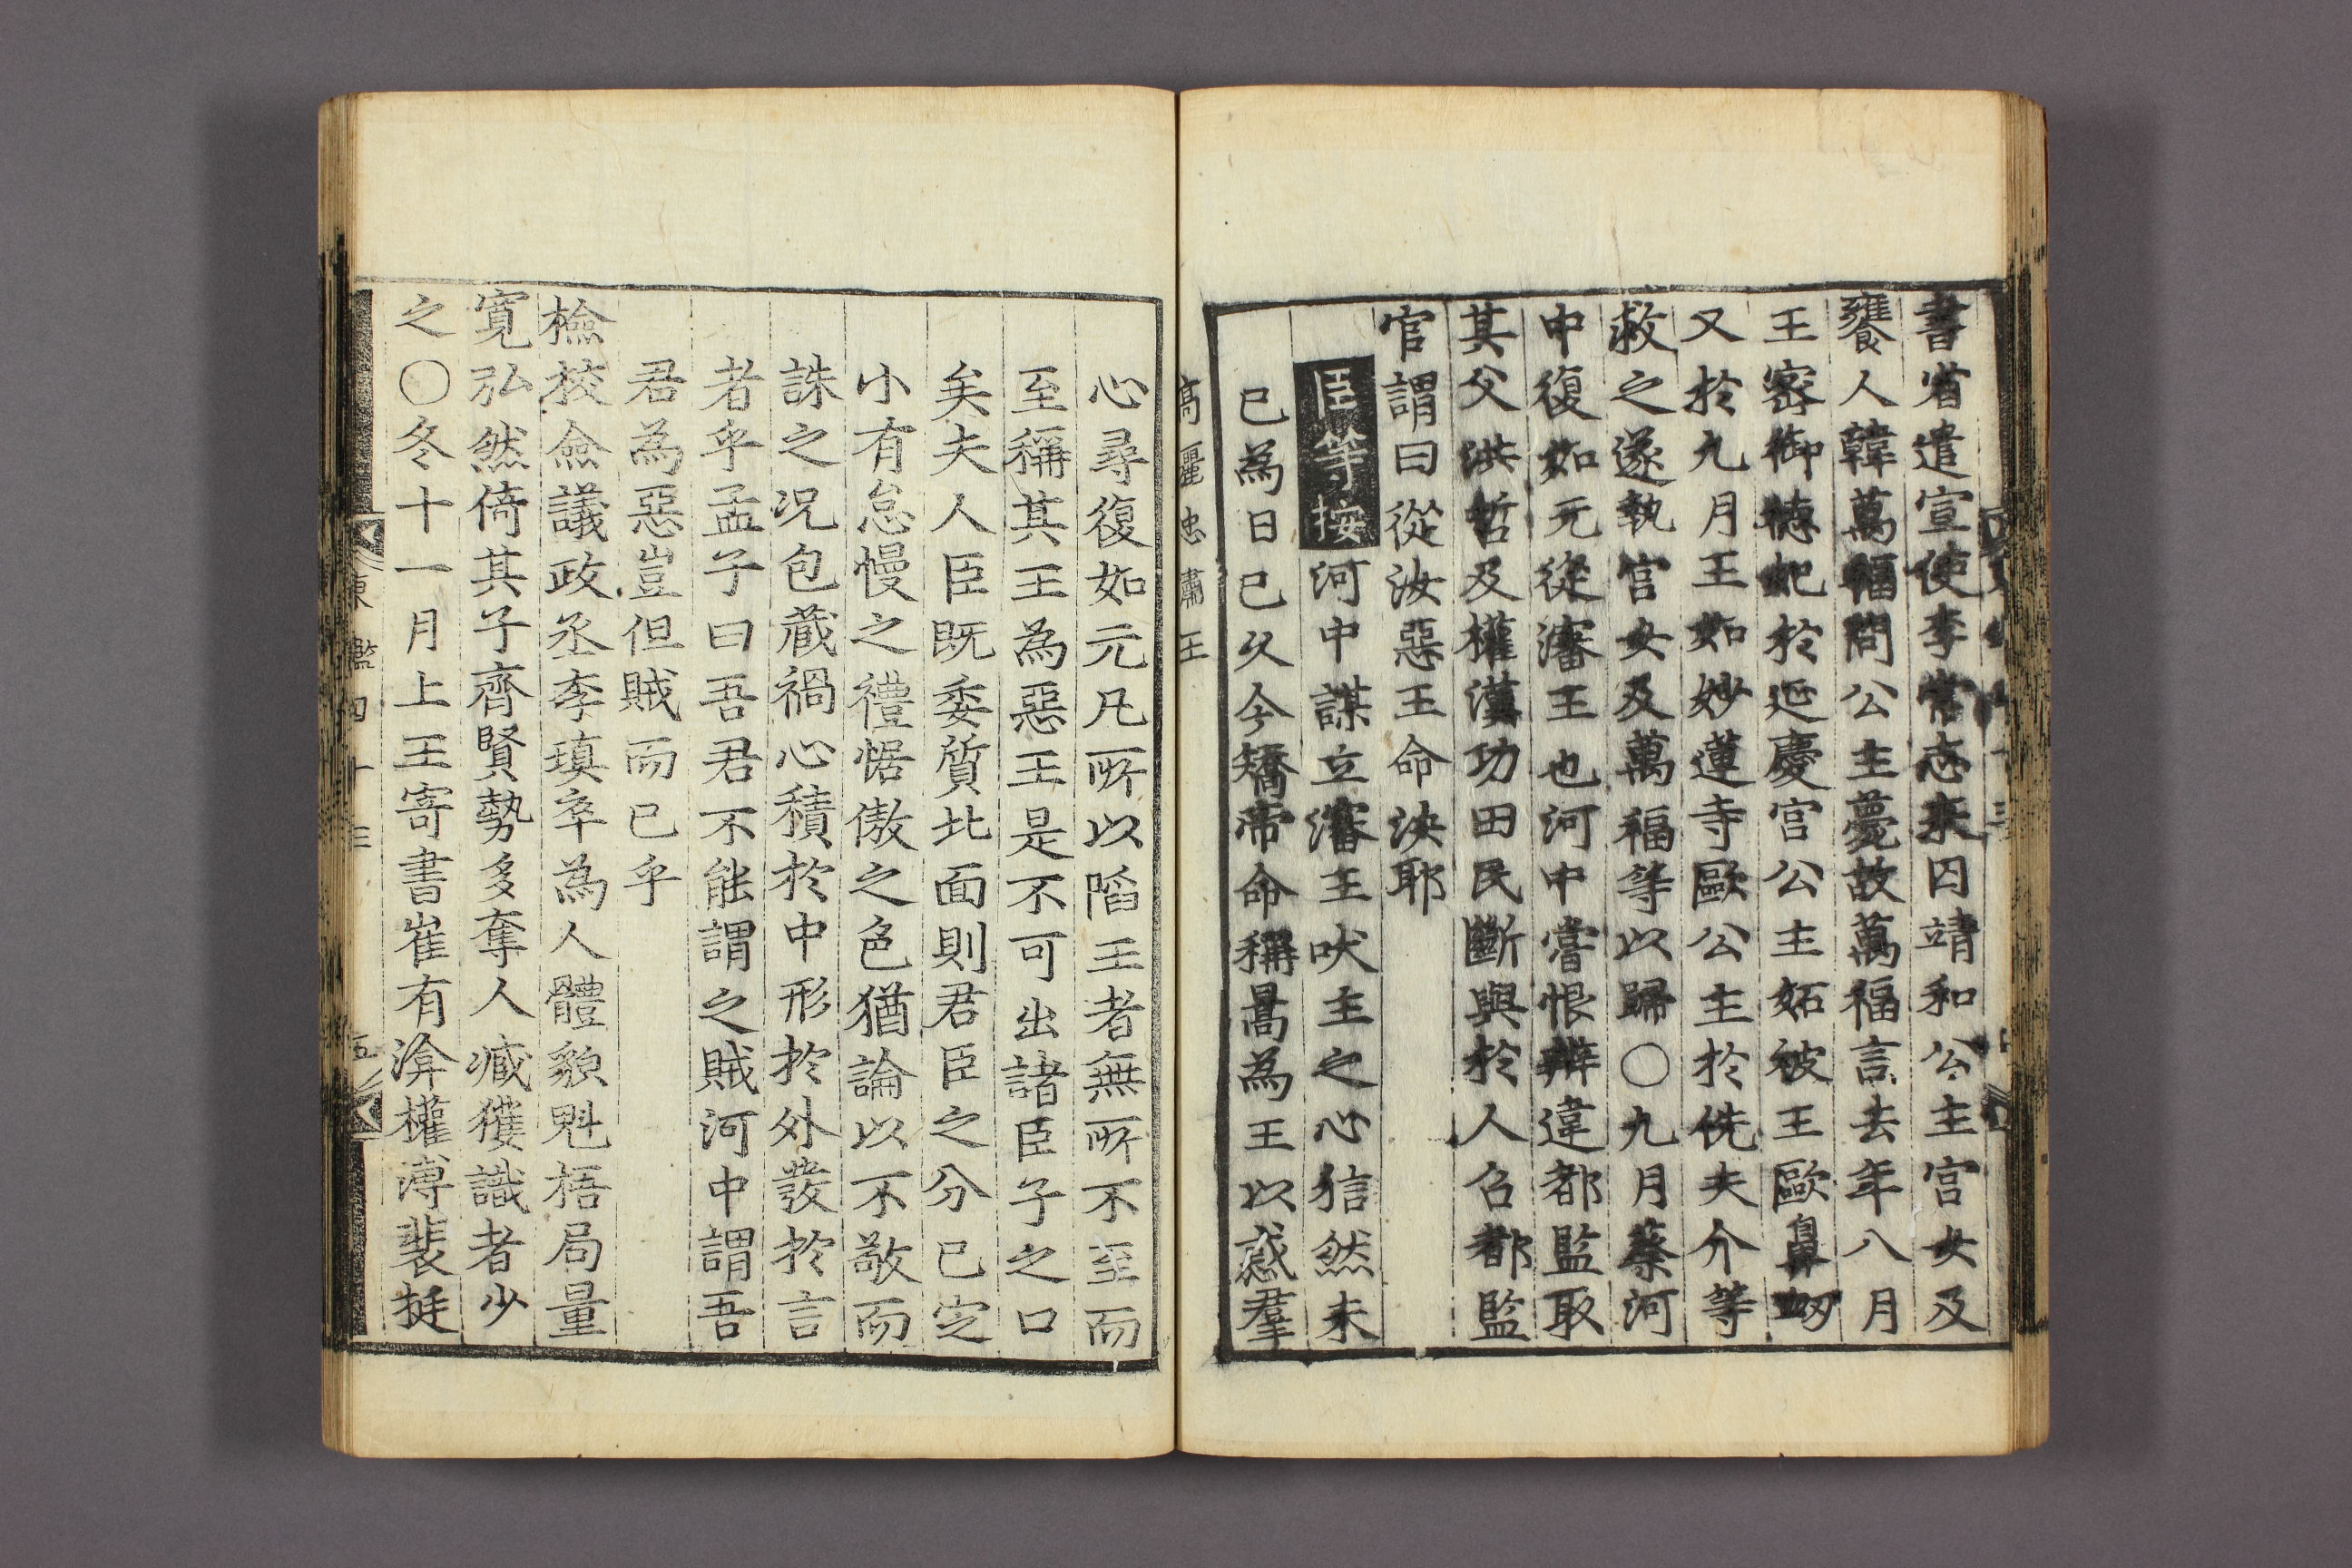 書省遣宣使李常志來囚靖和公主宮女及
饔人韓萬福問公主薨故萬福言去年八月
王密御德妃於延慶宮公主妬被王歐鼻衄
又於九月王如妙蓮寺歐公主於侁夫介等
救之遂執宮女及萬福等以歸○九月蔡河
中復如元從瀋王也河中嘗恨辨違都監取
其父洪哲及權漢功田民斷與於人召都監
官謂曰從汝惡王命決耶
臣等按河中謀立瀋王吠主之心狺然未
已為日已久今矯帝命稱暠為王以惑羣
高麗忠肅王
心尋復如元凡所以陷王者無所不至而
至稱其王為惡王是不可出諸臣子之口
矣夫人臣既委質北面則君臣之分已定
小有怠慢之禮倨傲之色猶論以不敬而
誅之况包藏禍心積於中形於外發於言
者乎孟子曰吾君不能謂之賊河中謂吾
君為惡豈但賊而已乎
檢校僉議政丞李瑱卒為人體貌魁梧局量
寬弘然倚其子齊賢勢多奪人臧獲識者少
之○冬十一月上王寄書崔有渰權溥裴挺
東鑑四十三
五